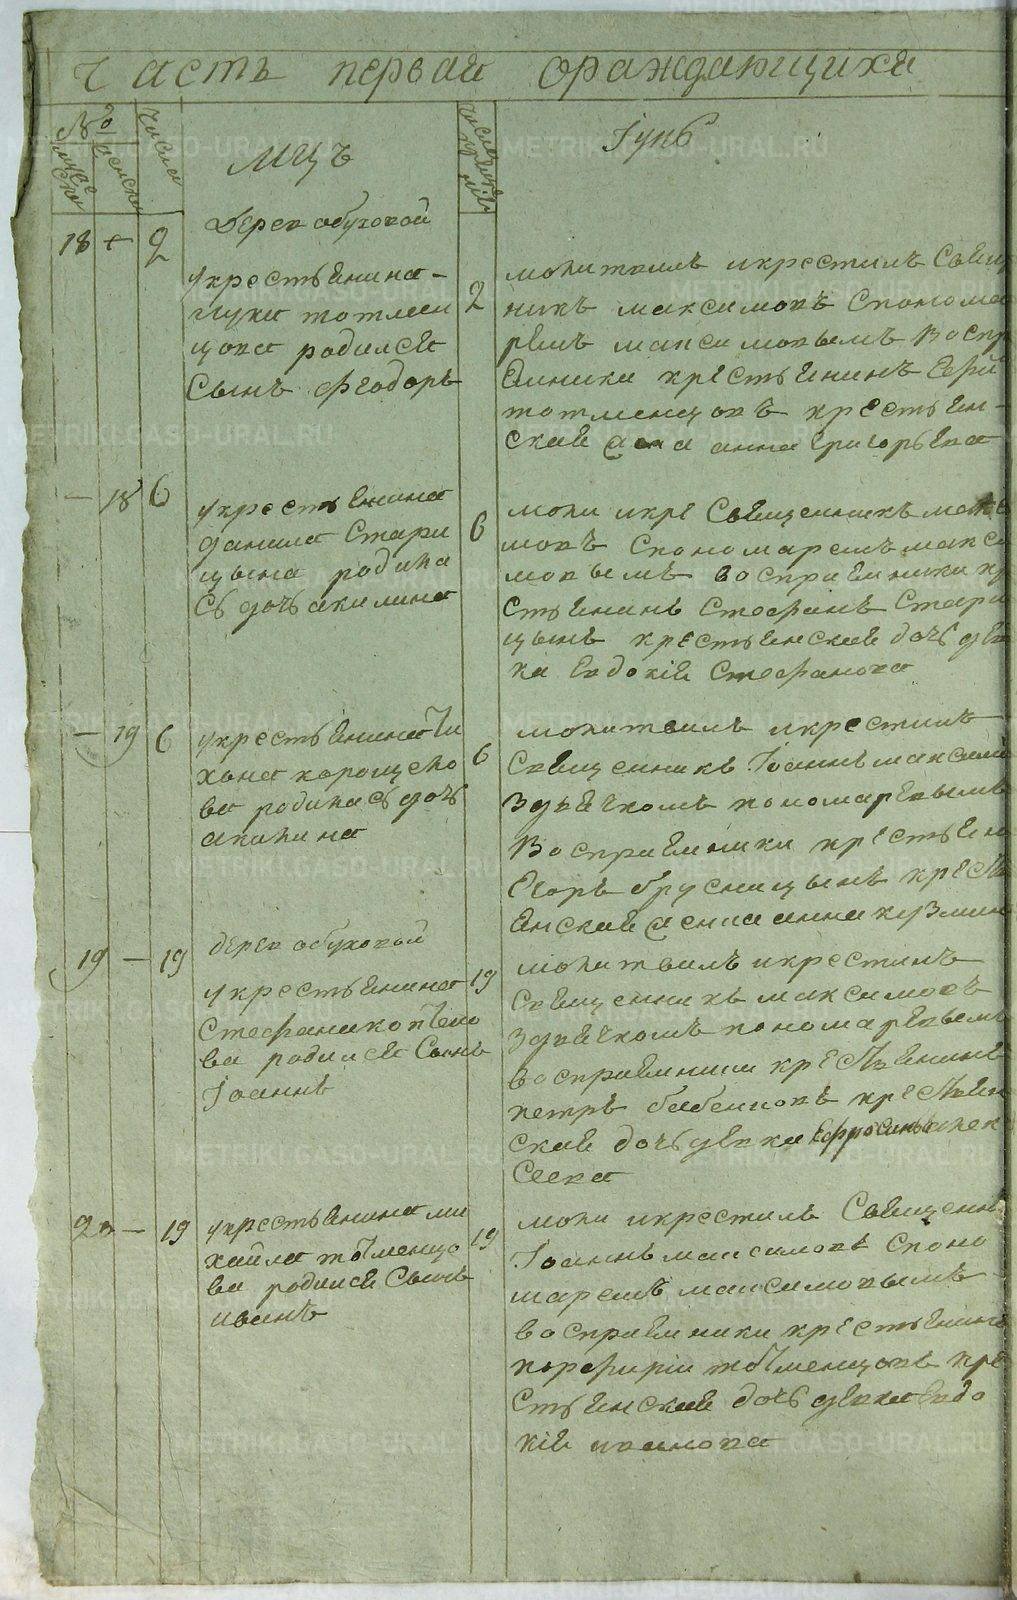 Часть первая ораждающихся
№
мужеска
женска
числа
Мцъ
числа крещенія
Іунь
Дерев обуховой
18 + 2
укрестьянина
луки тотмен
цова родился
Сынъ Феодоръ
2
молитвилъ икрестилъ Свящ
никъ максимовъ Спонома
ремъ максимовымъ Воспр
емники крестьянинъ
тотменцовъ крестьян
ская жена анна григорьева
— 18 6
укрестьянина
данила Стари
цына родила
сь дочь акилина
6
моли икре Священникъ макси
мовъ Спономаремъ макси
мовымъ воспріемники кр
стьянинъ Стефанъ Стари
цынъ крестьянская дочь дев
ка Евдокія Стефанова
— 19 6
укрестьянина Ти
хона хорошево
ва родилась дочь
акилина
6
молитвилъ икрестилъ
Священникъ Іоаннъ максимо
здьячкомъ пономаревымъ
Воспріемники крестьян
Егоръ брусницынъ крест
янская жена анна козмин
19 — 19
дерев обуховой
укрестьянина
Стефана коптело
ва родился Сынъ
Іоаннъ
19
молитвилъ икрестилъ
Священникъ максимовъ
здьячкомъ пономаревымъ
воспріемники крестьянинъ
петръ бабенковъ крестьян
ская дочь девка Ефросинья алек
сеева
20 — 19
укрестьянина ми
хайла тотменцо
ва родился Сынъ
иванъ
19
моли икрестилъ Священн
Іоаннъ максимовъ Споно
маремъ максимовымъ
воспріемники крестьянинъ
порфирій тотменцовъ кре
стьянская дочь девка Евдо
кія иванова